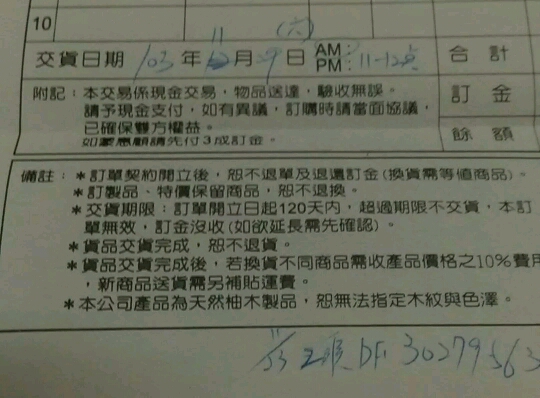 10
11 (六)
交貨日期 103年12月29日 AM: PM: 11-12点 合計
附記：本交易係現金交易，物品送達，驗收無誤。 訂金
請予現金支付，如有異議，訂購時請當面協議，
已確保雙方權益。 餘額
如蒙惠顧請先付3成訂金。
備註：*訂單契約開立後，恕不退單及退還訂金(換貨需等値商品)。
*訂製品、特價保留商品，恕不退換。
*交貨期限：訂單開立日起120天內，超過期限不交貨，本訂
單無效，訂金沒收(如欲延長需先確認)。
*貨品交貨完成，恕不退貨。
*貨品交貨完成後，若換貨不同商品需收產品價格之10%費用
，新商品送貨需另補貼運費。
*本公司產品為天然柚木製品，恕無法指定木紋與色澤。
DF 30279563